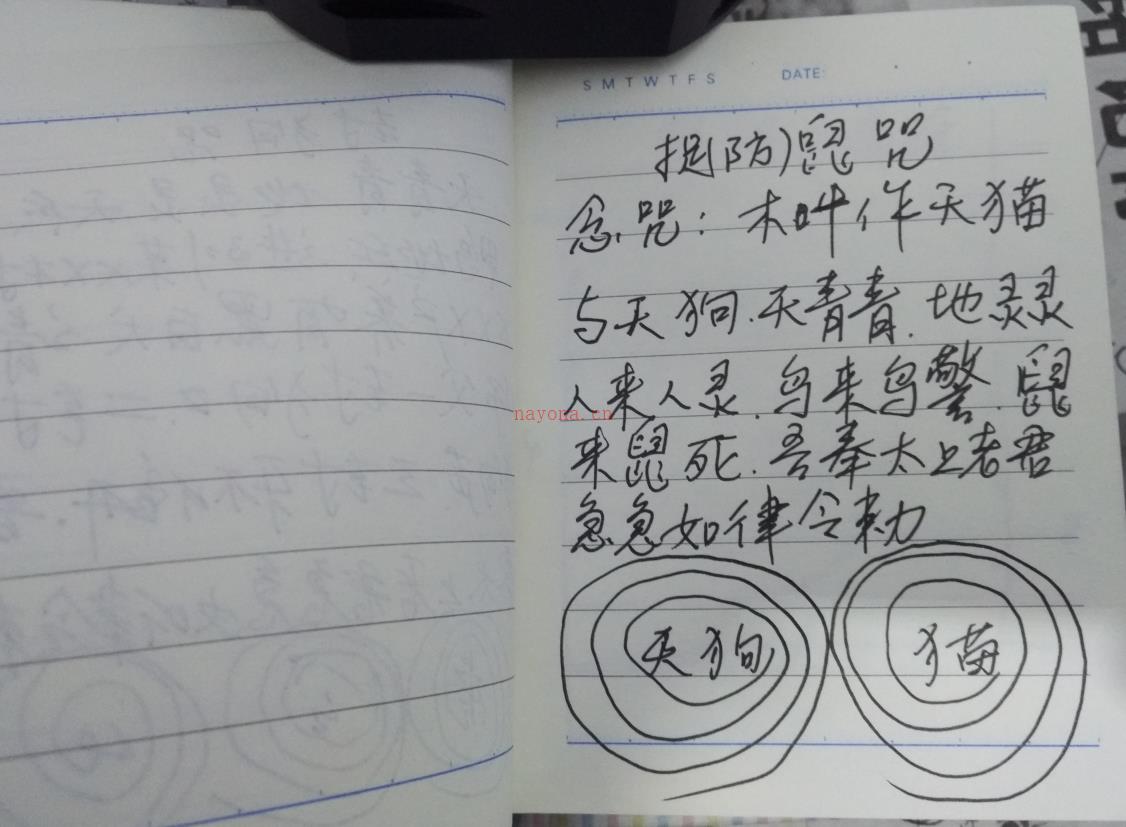 S M T W T F S DATE:
捉(防)鼠咒
念咒：木叶作天猫
与天狗.天青青.地灵灵
人来人灵.鸟来鸟警.鼠
来鼠死.吾奉太上老君
急急如律令勅
天狗 猫
nayona.cn